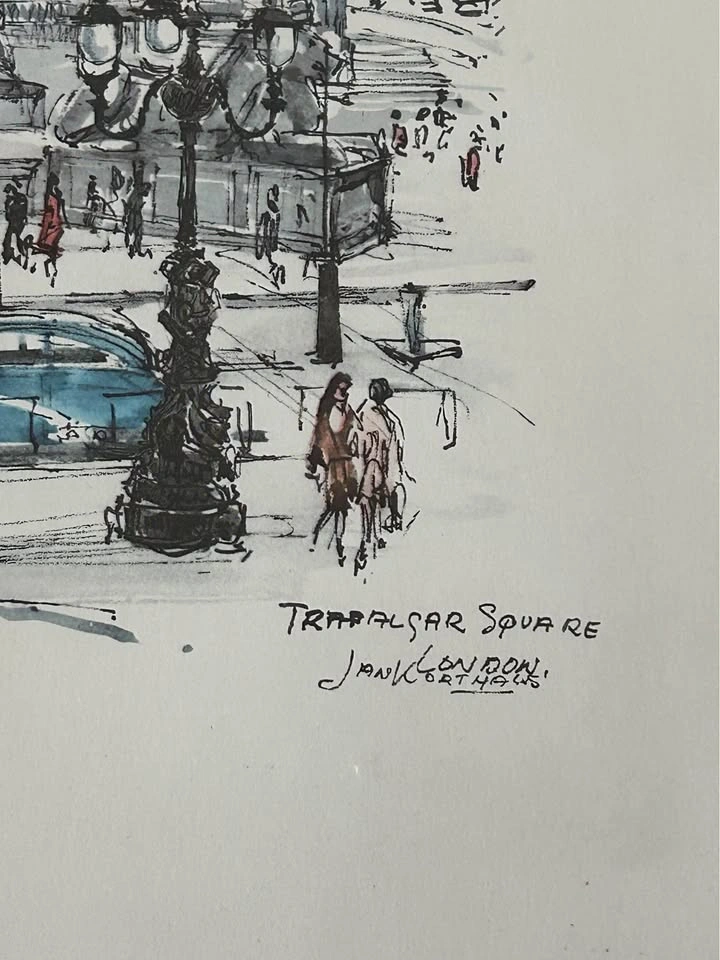 TRAFALGAR SQUARE
LONDON.
JAN KORTHALS